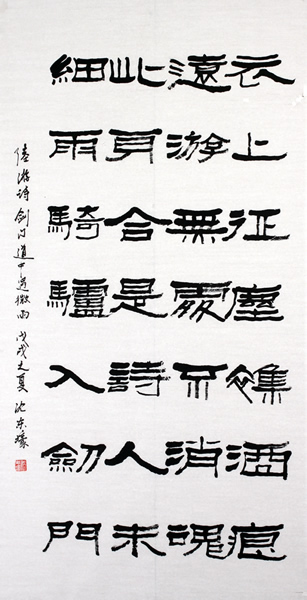 衣上征塵雜酒痕
遠游無處不消魂
此身合是詩人未
細雨騎驢入劍門
陸游诗剑门道中遇微雨 戊戌之夏 沈东